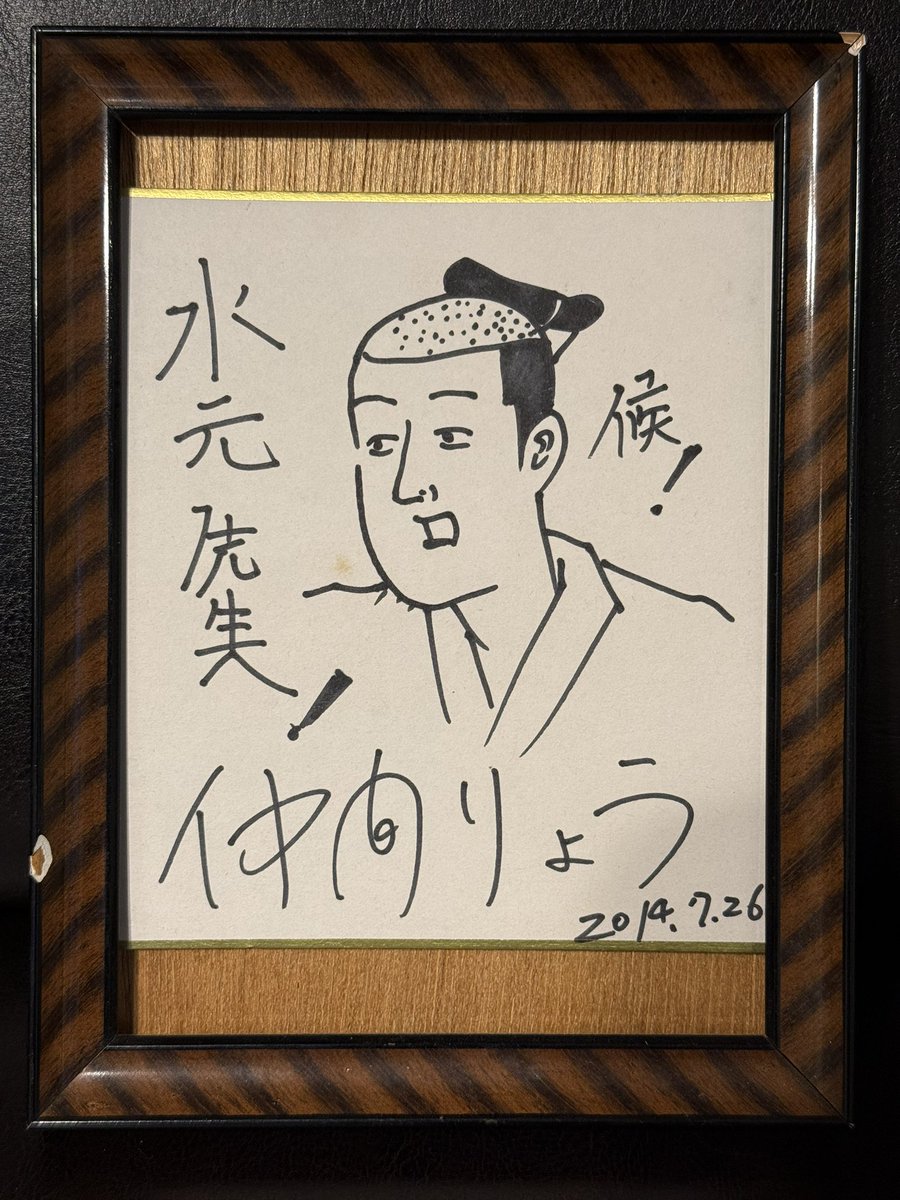 水元虎!
候!
仲間りょう
2014.7.26